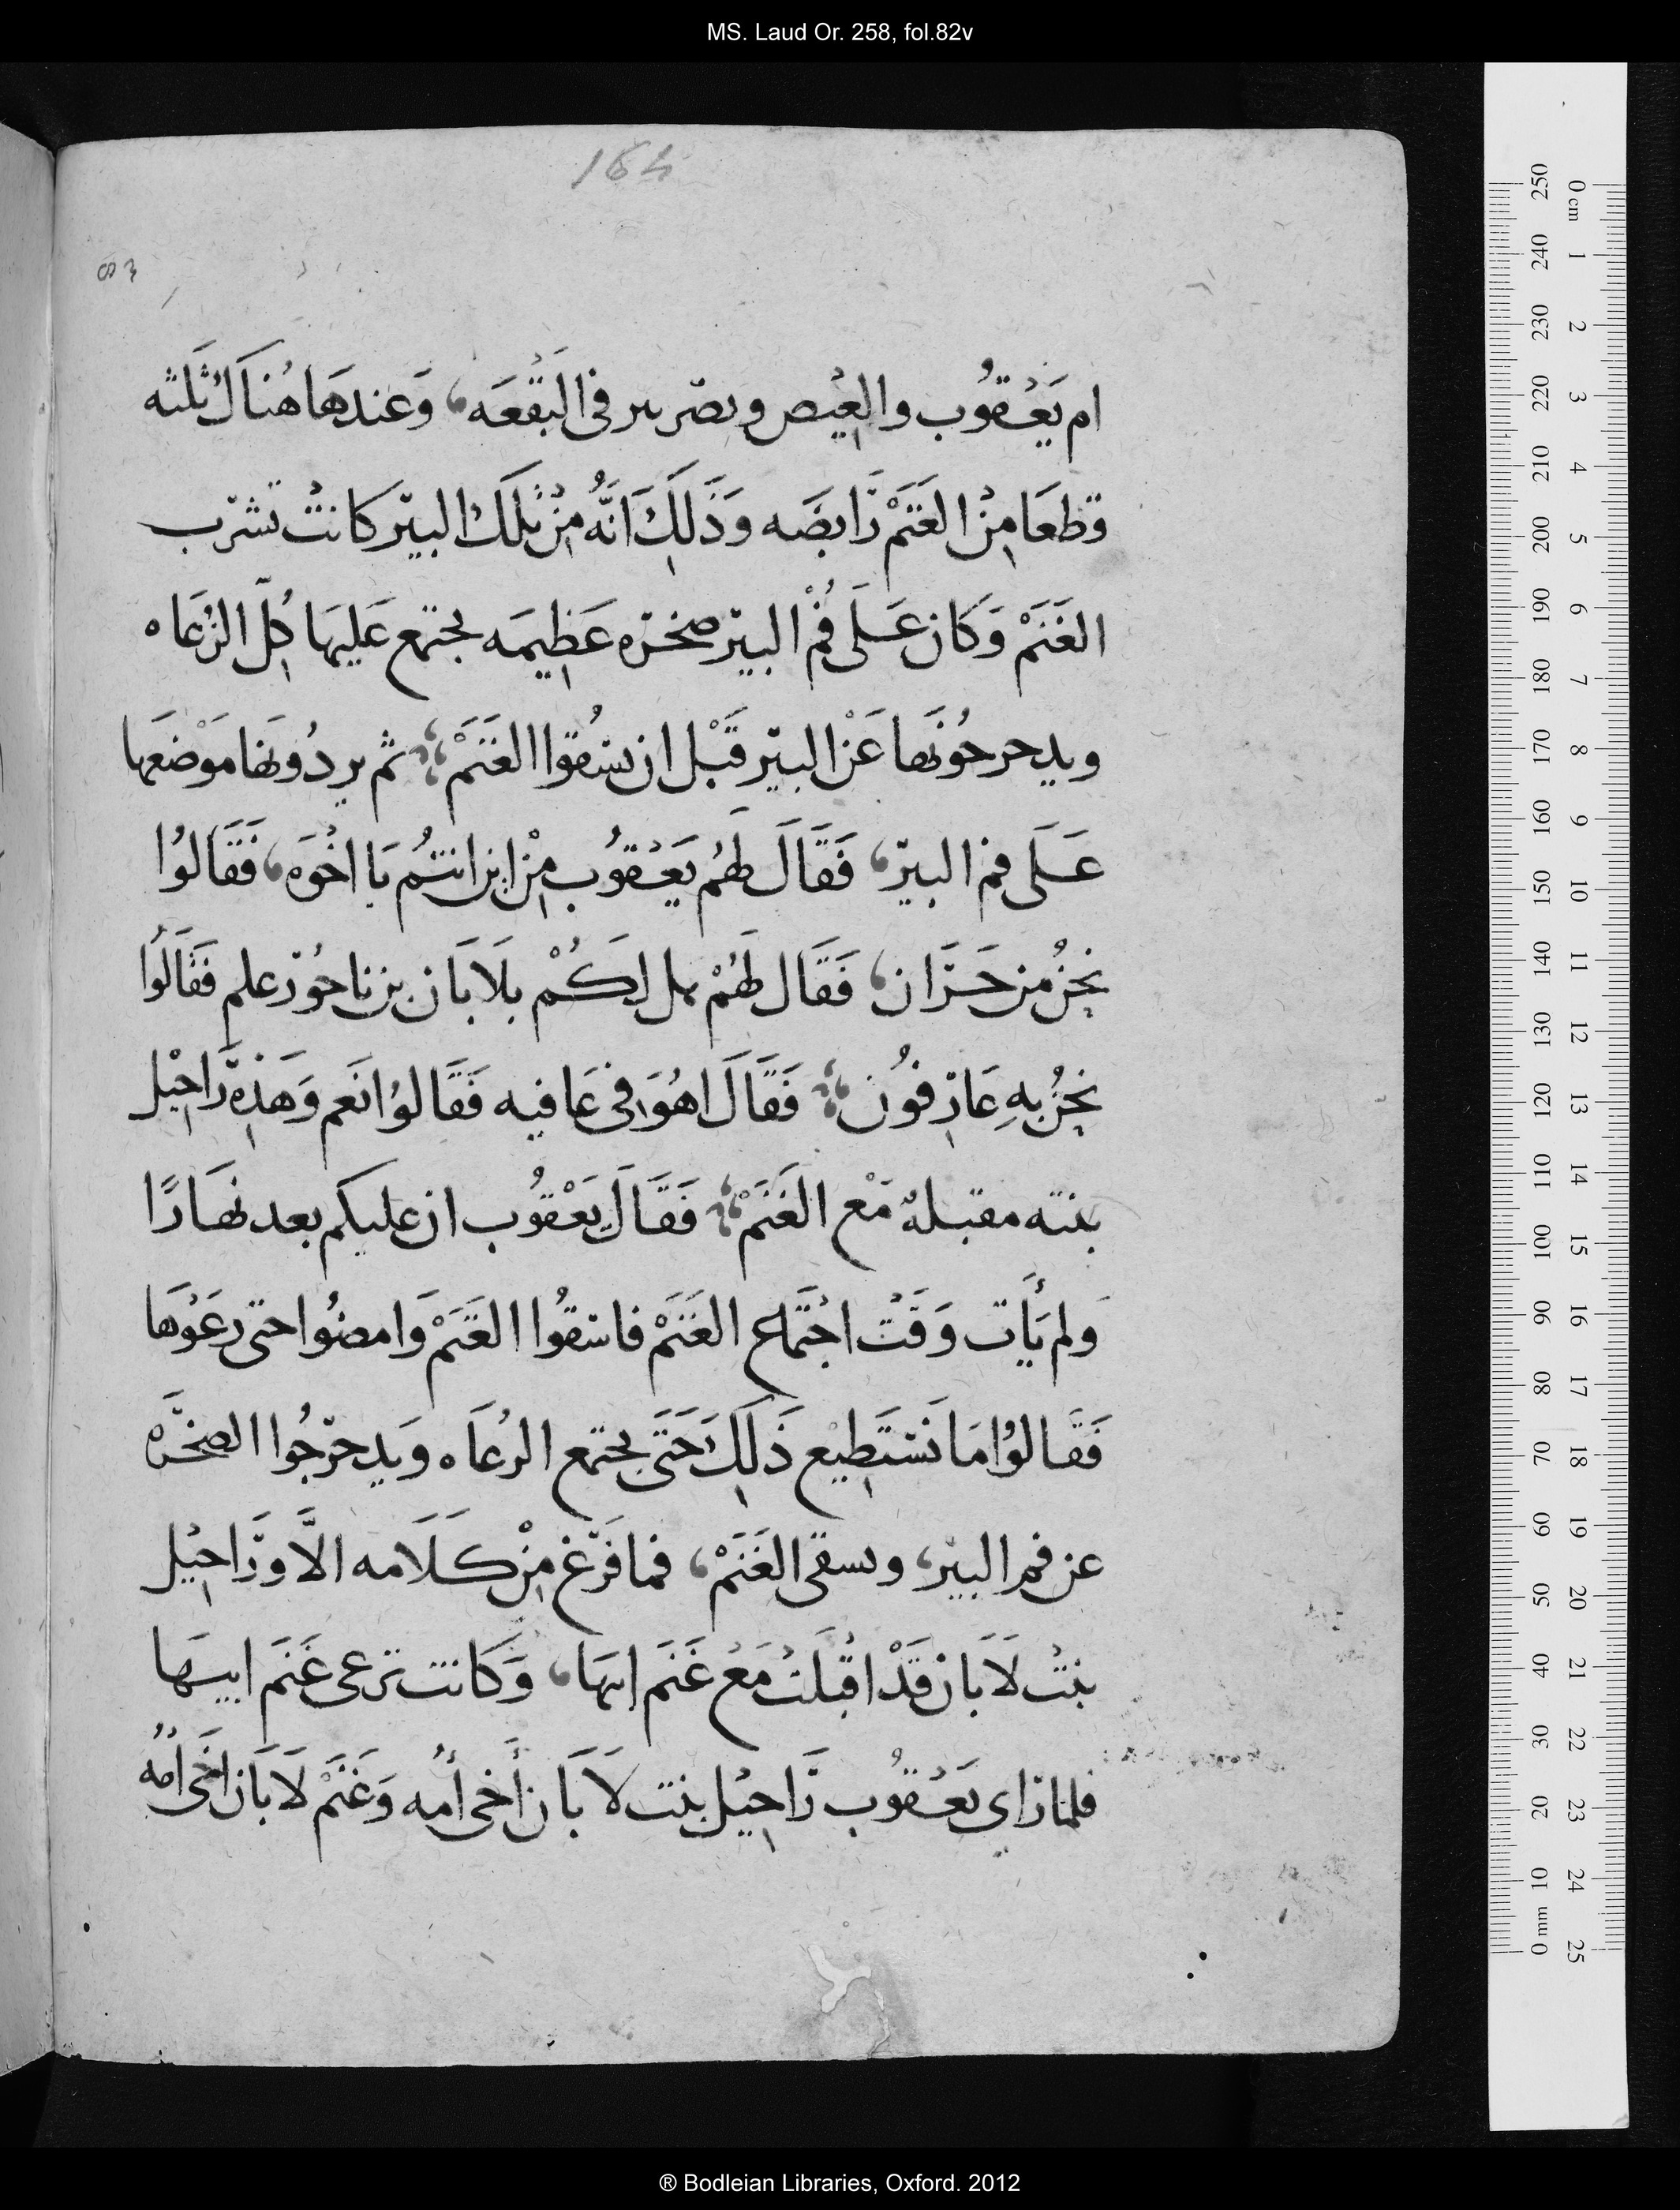 MS. Laud Or. 258, fol.82v
164
83
ام يَعْقوُب والعِيْص وبصر بير فى البُقْعَه، وَعندهَا هُناَكْ ثَلثه
قطعَا مِنْ الغَنَمْ رَابضَه وَذَلِكَ انَّهُ مِنْ تْلكْ البير كانتْ تشرب
الغَنَمْ وَكَان عَلَى فُمْ البير صخره عَظِيمَه يجتمع عَليهَا كِلّ الرُعَاه
ويدحرحوُنَها عَنْ البير قَبْل ان يسُقوا الغَنَمْ ثم يردُونَها مَوْضعَها
عَلَى فم البير، فَقَالَ لَهُم يَعْقوُب مِنْ اين انتُم يَا اخْوَه، فَقَالوُا
نحِنُ من حَرَان، فَقَال لَهُمْ هل لِكُمْ بلاَبَان بن ناحُور علم فَقَالوُا
نحِنُ بهِ عَارِفوُن فَقَالَ اهُوَ فى عَافيه فَقَالوُا نَعم وَهَذِه رَاحِيْل
بنته مقبلهْ مَعْ الغَنَمْ فَقَالَ يَعْقوُب ان عليكم بعد نهَارًا
ولم يَأَت وَقَتْ اجْتَماع الغَنَمْ فاسقوُا الغَنَمْ وَامضوُا حتى رعَوْهَا
فَقَالوُا مَا نَسْتَطِيْع ذَلِكَ حَتَى يجتمع الرُعَاه وَيدحرجُوا الصخَرَه
عن فم البير، ويسقى الغَنَمْ، فما فَرَغ مِنْ كَلَامه الاَّ ورَاحِيْل
بنتْ لَابَان قَدْ اقبَلتْ مَعْ غَنَم ابيهَا، وَكَانت ترعى غَنَم ابيهَا
فلما رَاى يَعْقوُب رَاحِيْل بنت لَابَان أَخى أُمه وَغَنَمْ لَابَان اخَى امُه
® Bodleian Libraries, Oxford. 2012